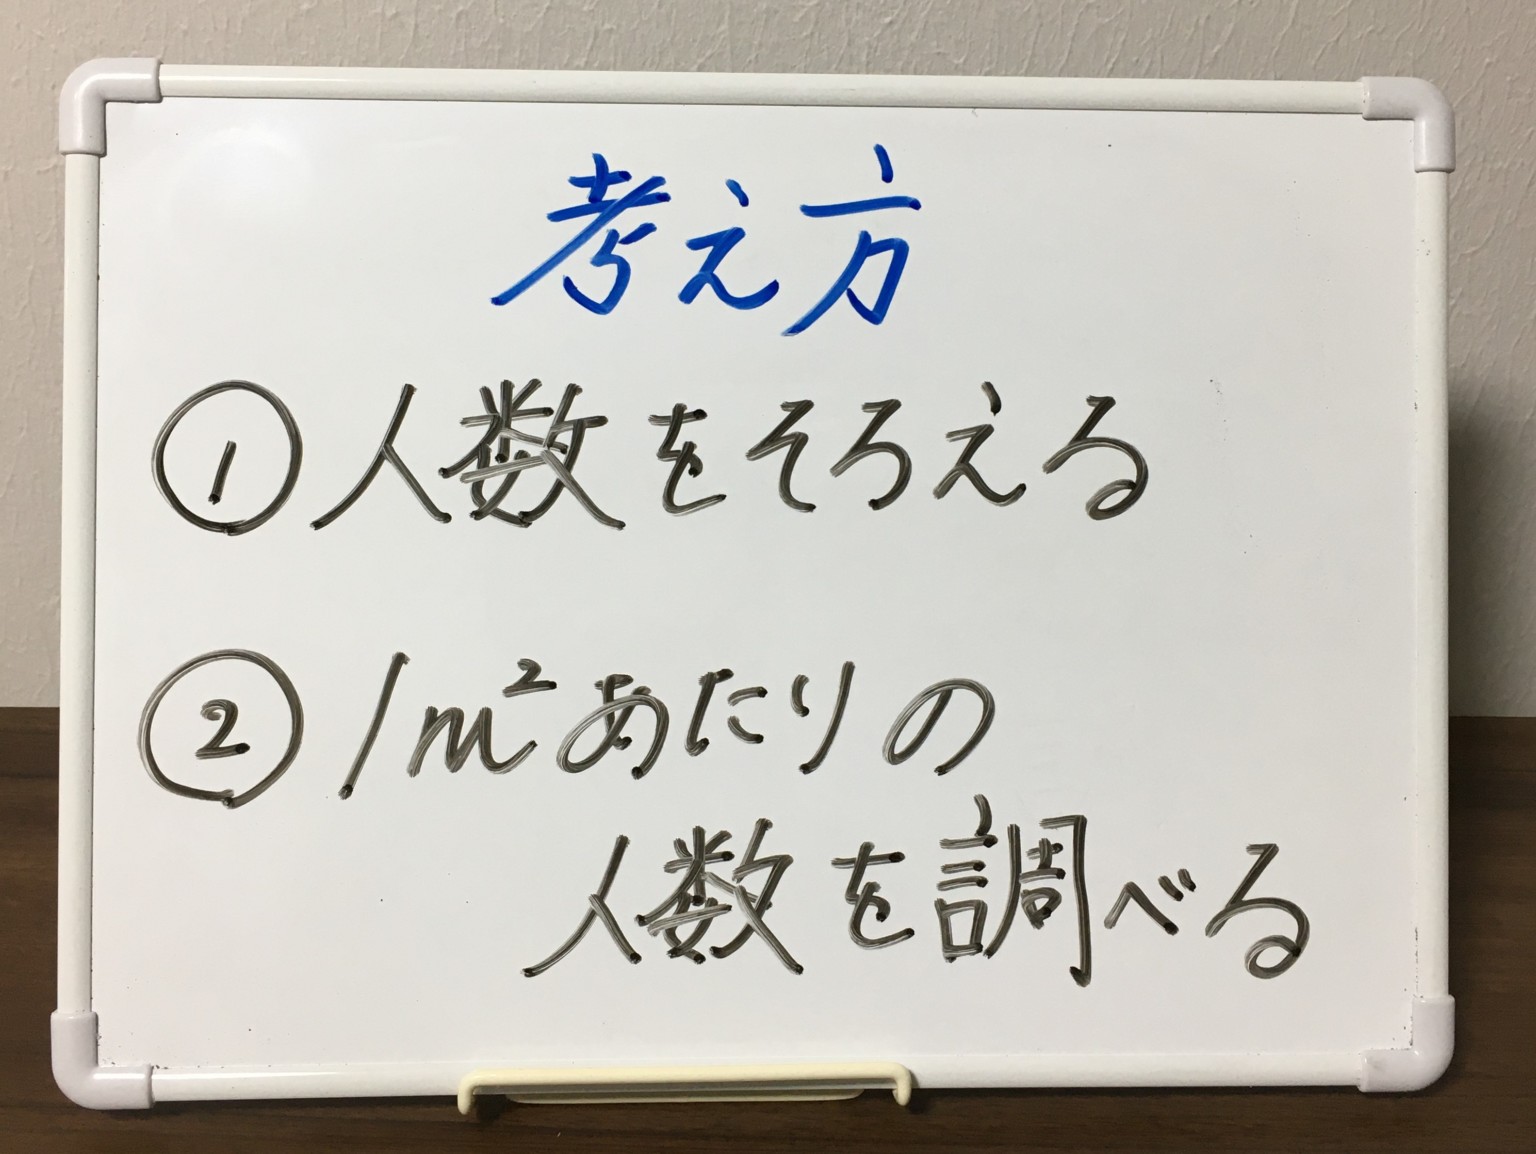 考え方
①人数をそろえる
②1m²あたりの
人数を調べる